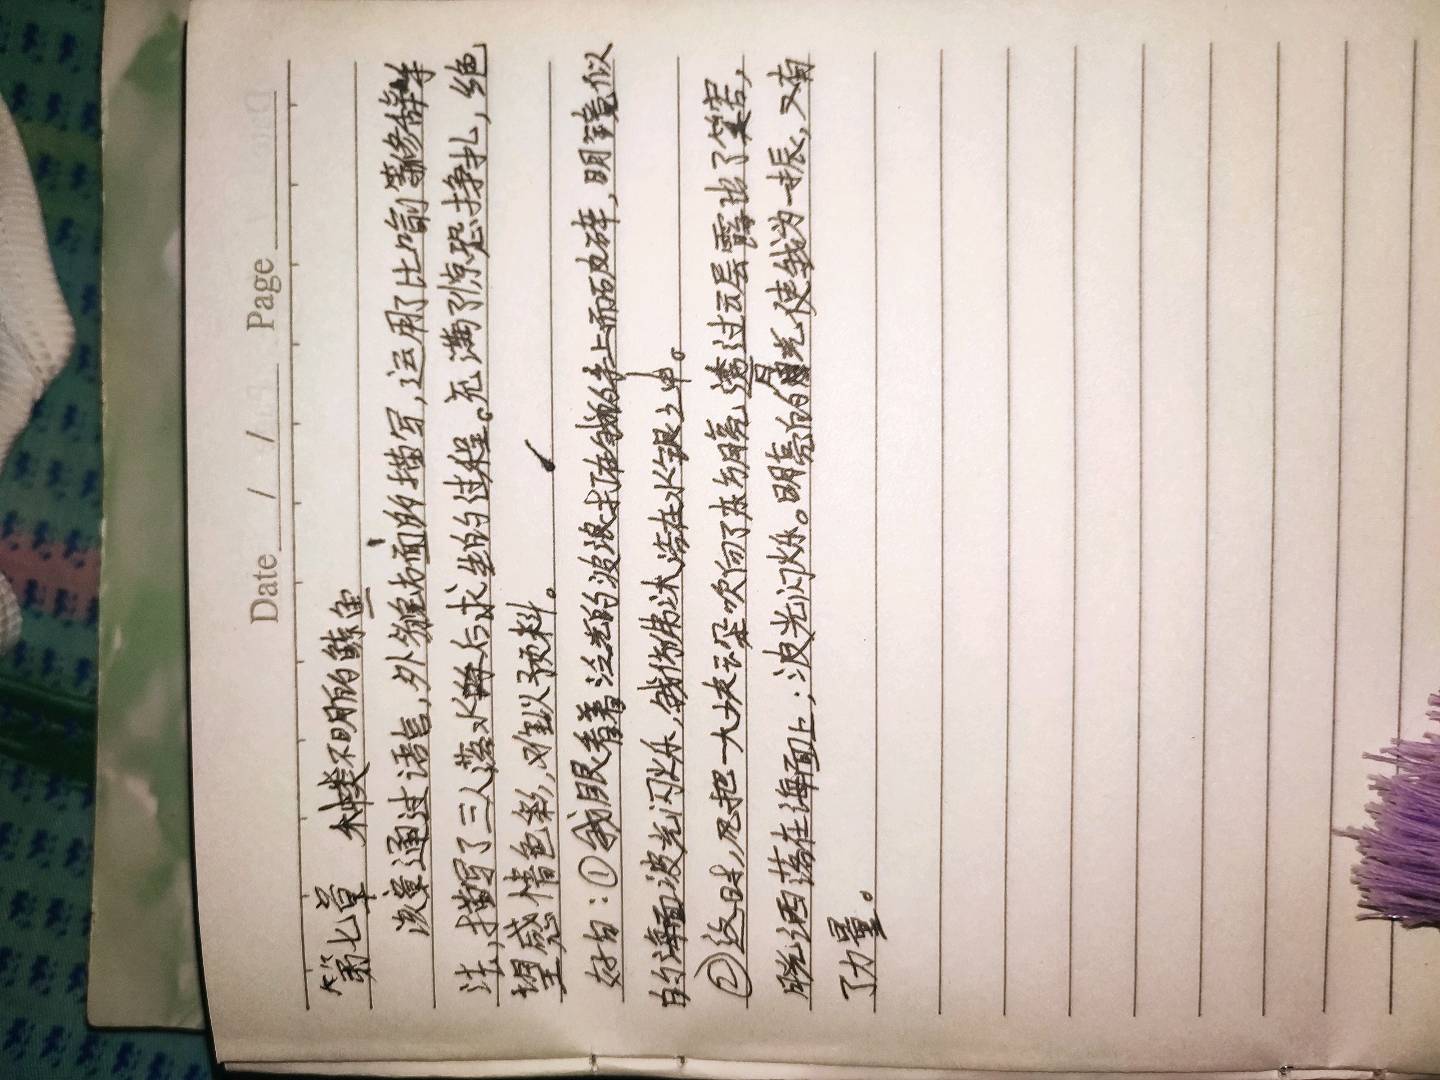 Date / / Page
第七章 种类不明的鲸鱼
该章通过语言,外貌方面的描写,运用了比喻等修辞手
法,描写了三人落水后求生的过程。充满了惊恐挣扎,绝
望感情色彩,难以预料。
好句:①我眼看着汹涌的波浪打在我的手上而破碎,明镜似
的海面波光闪烁,我们仿佛沐浴在水银之中。
②这时,风把一大块云朵吹向了东方,月亮透过云层露出了笑容,
月光洒落在海面上,波光闪烁。明亮的月光使我为一振,又有
了力量。